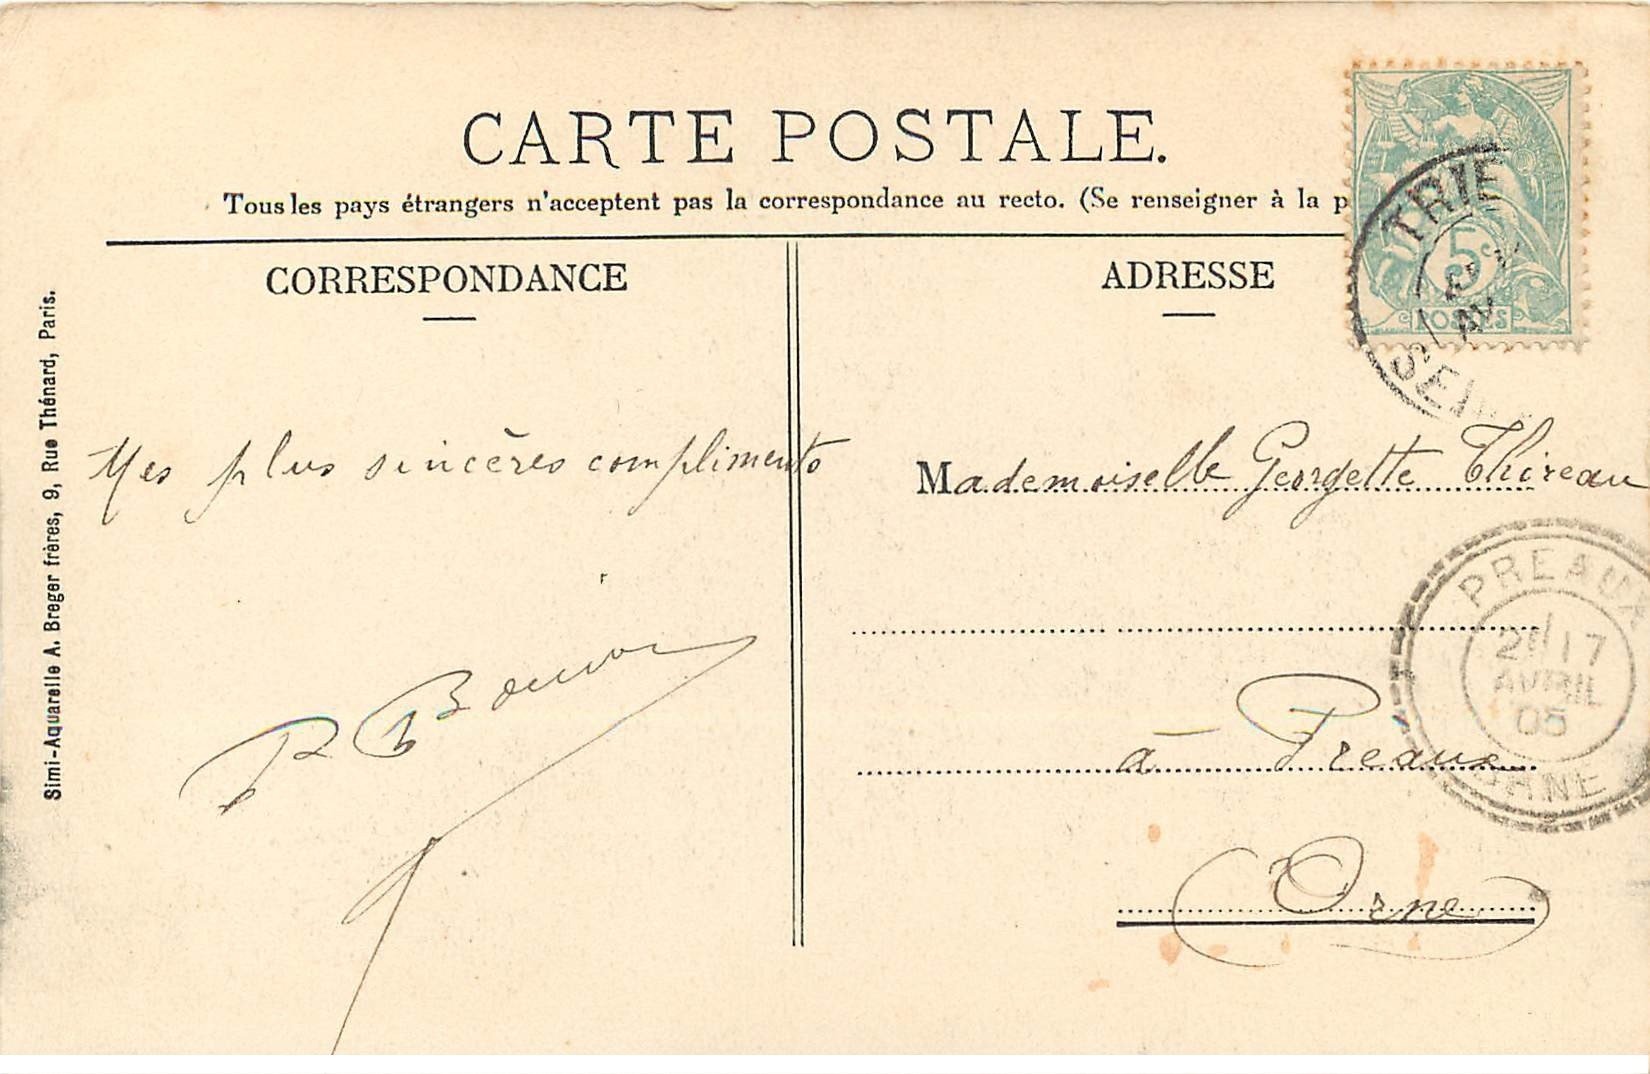 CARTE POSTALE.
Tous les pays étrangers n'acceptent pas la correspondance au recto. (Se renseigner à la p
CORRESPONDANCE
ADRESSE
Simi-Aquarelle A. Breger frères, 9, Rue Thénard, Paris.
5c
POSTES
TRIE
AV
Mes plus sincères compliments
Mademoiselle Georgette Thireau
PREAUX
17
AVRIL
05
ORNE
à Preaux
Orne